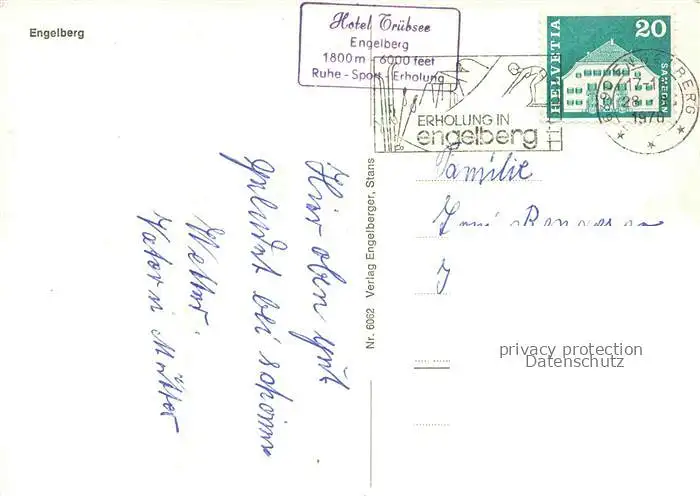 Engelberg
Hotel Trübsee
Engelberg
1800 m - 6000 feet
Ruhe - Sport - Erholung
ERHOLUNG IN
engelberg
HELVETIA
20
SAMEDAN
ENGELBERG
28
1970
Familie
Nr. 6062 Verlag Engelberger, Stans
Hier oben gut
gelandet bei schönem
Wetter.
Vater u Mutter
privacy protection
Datenschutz